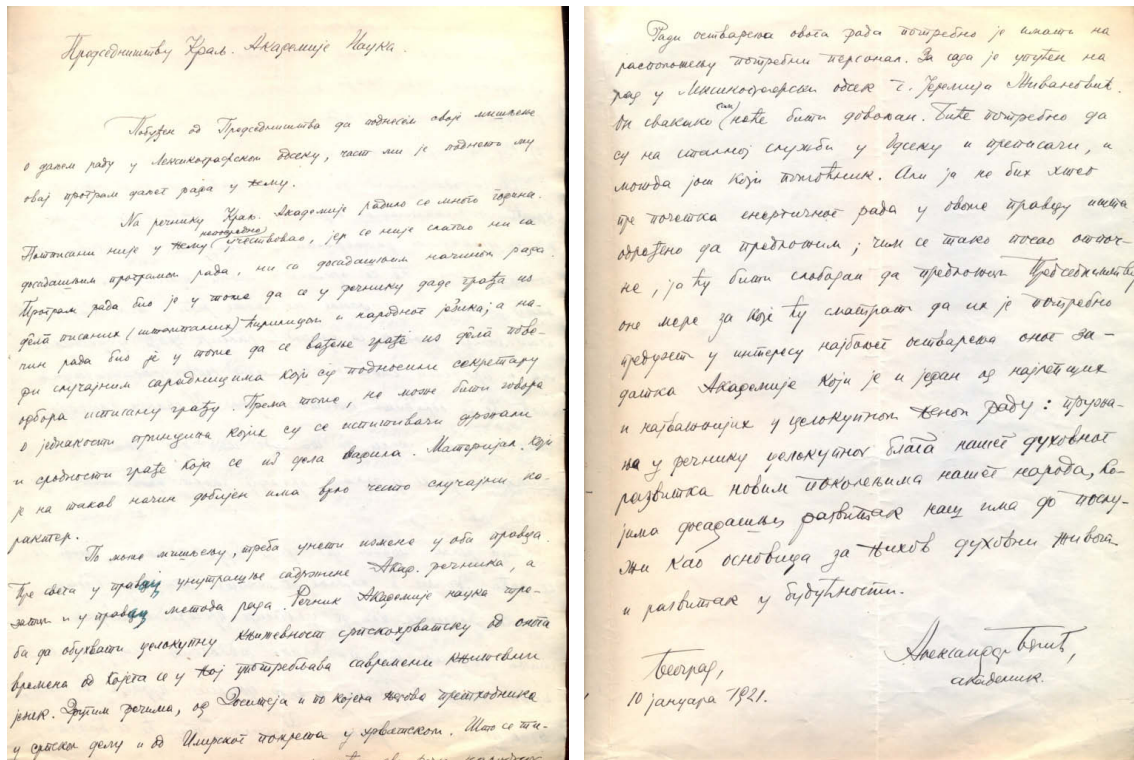 Председништву Краљ. Академије Наука.
Побуђен од Председништва да поднесем своје мишљење
о даљем раду у Лексикографском одсеку, част ми је поднети му
овај програм даљег рада у њему.
На речнику Краљ. Академије радило се много година.
непосредно
Потписани није у њему учествовао, јер се није слагао ни са
досадашњим програмом рада, ни са досадашњим начином рада.
Програм рада био је у томе да се у речнику даде грађа из
дела писаних (штампаних) ћирилицом и народног језика; а на-
чин рада био је у томе да се вађење грађе из дела пове-
ри случајним сарадницима који су подносили секретару
одбора исписану грађу. Према томе, не може бити говора
о једнакости принципа којих су се исписивачи држали
и сродности грађе која се из дела вадила. Материјал који
је на такав начин добијен има врло често случајни ка-
рактер.
По моме мишљењу, треба унети измене у оба правца.
Пре свега у правцу унутрашње садржине Акад. речника, а
затим и у правцу метода рада. Речник Академије наука тре-
ба да обухвати целокупну књижевност српскохрватску од онога
времена од којега се у њој употребљава савремени књижевни
језик. Другим речима, од Доситеја и по којега његова претходника
у српском делу и од Илирског покрета у хрватском. Што се ти-
Ради остварења овога рада потребно је имати на
расположењу потребни персонал. За сада је упућен на
рад у Лексикографски одсек г. Јеремија Живановић.
(сам)
Он свакако неће бити довољан. Биће потребно да
су на сталној служби у Одсеку и преписачи, и
можда још који помоћник. Али ја не бих хтео
пре почетка енергичног рада у овоме правцу ништа
одређено да предложим; чим се тако посао отпоч-
не, ја ћу бити слободан да предложим Председништву
оне мере за које ћу сматрати да их је потребно
предузети у интересу најбољег остварења оног за-
датка Академије који је и један од најлепших
и најважнијих у целокупном њеном раду: пружа-
ња у речнику целокупног блага нашег духовног
развитка новим поколењима нашег народа, ко-
јима досадашњи развитак наш има да послу-
жи као основица за њихов духовни живот
и развитак у будућности.
Александар Белић,
академик.
Београд,
10 јануара 1921.